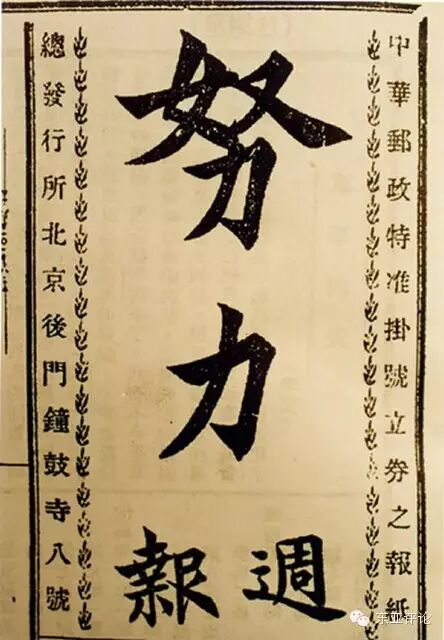 中華郵政特准掛號立券之報紙
努力
週報
總發行所北京後門鐘鼓寺八號
东亚评论